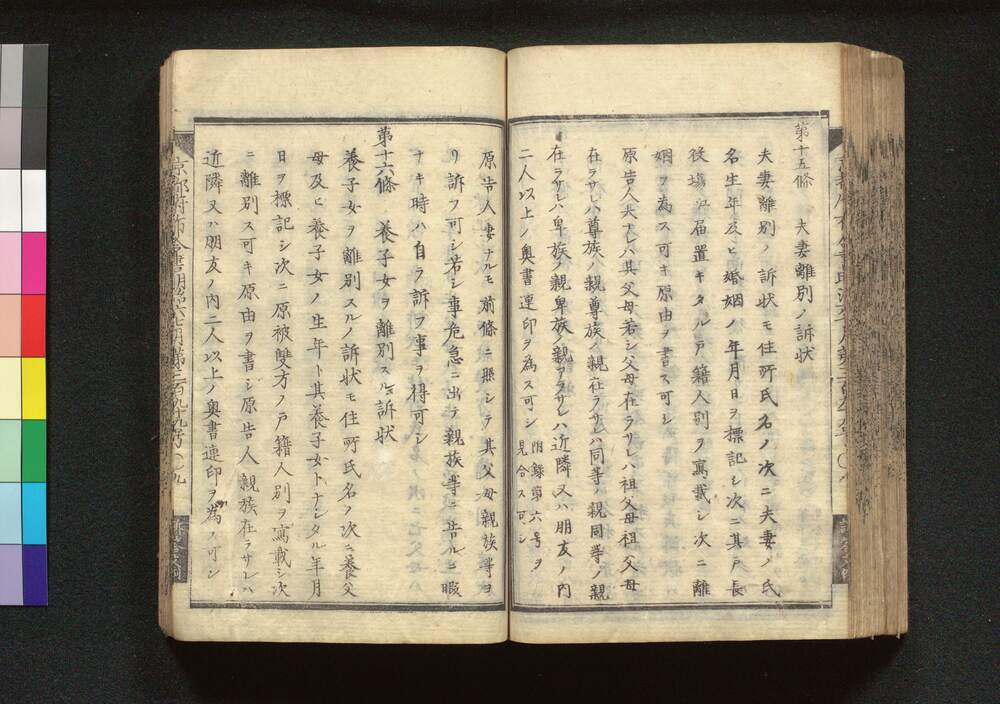 第十五條　夫妻離別ノ訴状
夫妻離別ノ訴状モ住所氏名ノ次ニ夫妻ノ氏
名生年及ヒ婚姻ノ年月日ヲ標記シ次ニ其戸長
役場江届置キタル戸籍人別ヲ寫載シ次ニ離
姻ヲ為ス可キ原由ヲ書ス可シ
原告人夫ナレハ其父母若シ父母在ラサレハ祖父母祖父母
在ラサレハ尊族ノ親尊族ノ親在ラサレハ同等ノ親同等ノ親
在ラサレハ卑族ノ親卑族ノ親アラサレハ近隣又ハ朋友ノ内
二人以上ノ奥書連印ヲ為ス可シ 附録第六号ヲ見合ス可シ
原告人妻ナルモ前條ニ照シテ其父母親族等ヨ
リ訴フ可シ若シ事危急ニ出テ親族等ニ告ルニ暇
ナキ時ハ自ラ訴フ事ヲ得可シ
第十六條　養子女ヲ離別スル訴状
養子女ヲ離別スルノ訴状モ住所氏名ノ次ニ養父
母及ヒ養子女ノ生年ト其養子女トナシタル年月
日ヲ標記シ次ニ原被雙方ノ戸籍人別ヲ寫載シ次
ニ離別ス可キ原由ヲ書シ原告人親族在ラサレハ
近隣又ハ朋友ノ内二人以上ノ奥書連印ヲ為ス可シ
京都府布令書明治六七月第二百九十九号〇九